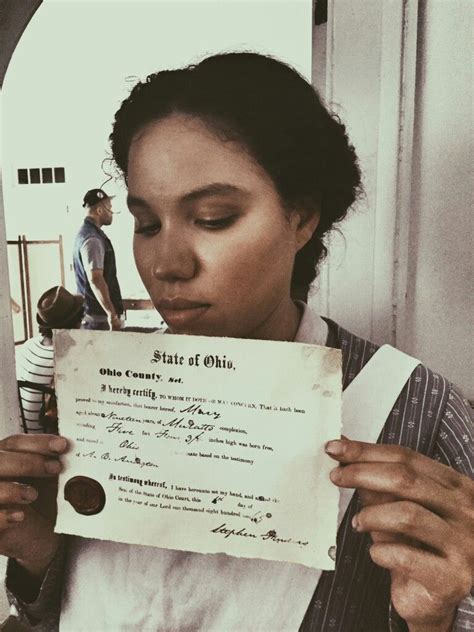 State of Ohio,
Ohio County, Set.
I hereby certify, TO WHOM IT DOTH OR MAY CONCERN, That it hath been
proved to my satisfaction, that bearer hereof, Mary
aged about Nineteen years, a Mulatto complexion,
standing Five feet Four 3/4 inches high was born free,
and raised in Ohio on the testimony
of A. B. Audington
In testimony whereof, I have hereunto set my hand, and
Seal of the State of Ohio Court, this day of
in the year of our Lord one thousand eight hundred
Stephen